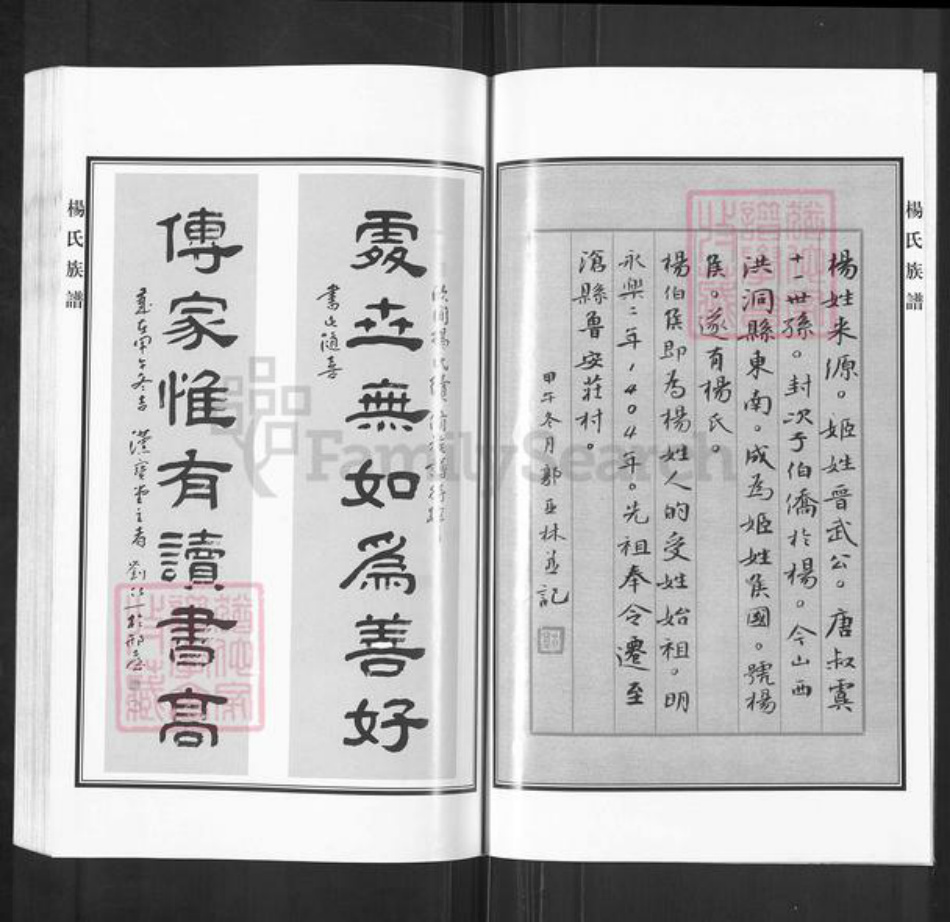 楊氏族譜
楊姓来源。姬姓晋武公。唐叔虞
十一世孫。封次子伯僑於楊。今山西
洪洞縣東南。成為姬姓侯國。號楊
侯。遂有楊氏。
楊伯侯即為楊姓人的受姓始祖。明
永樂二年1404年。先祖奉令遷至
滄縣魯安莊村。
甲午冬月郭亚林並記
處世無如為善好
書此随喜
傳家惟有讀書高
漢寶堂主者
楊氏族譜
FamilySearch